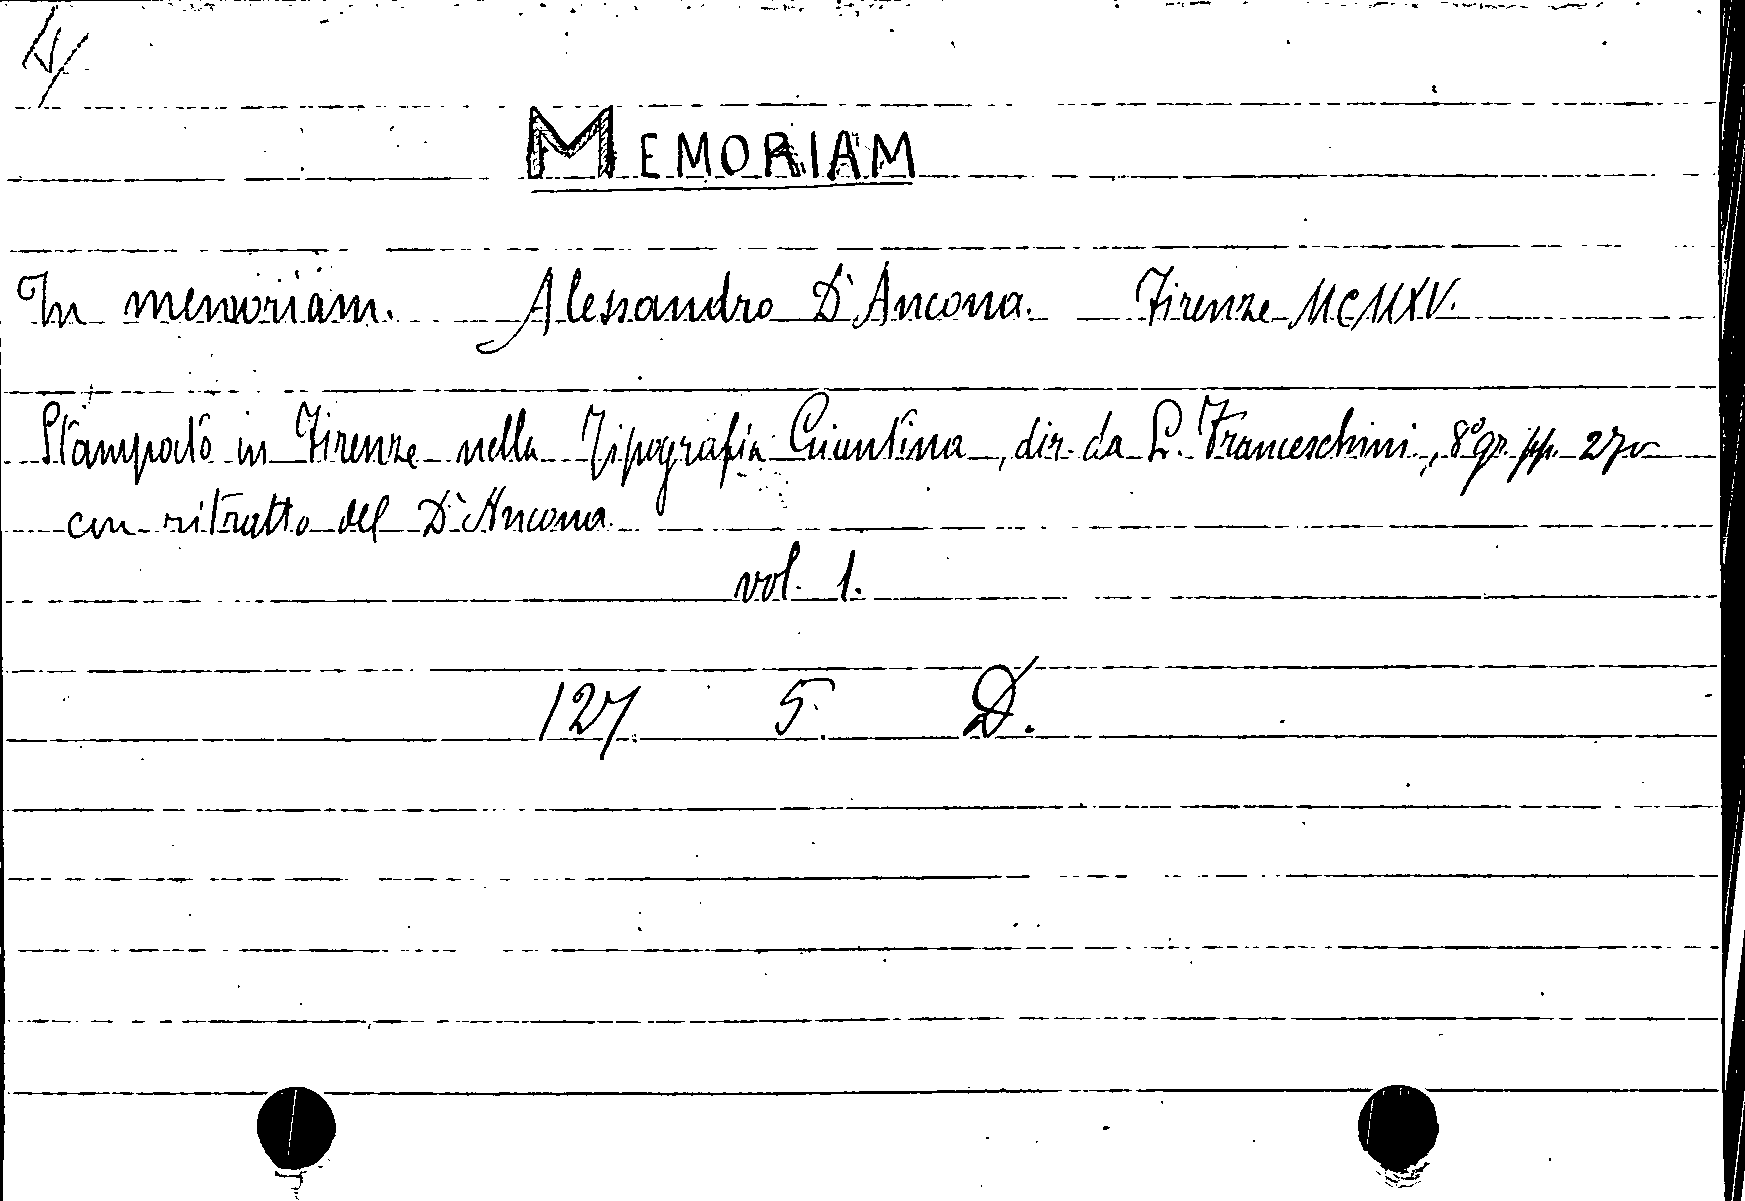 MEMORIAM
In memoriam. Alessandro D'Ancona. Firenze MCMXV.
Stampato in Firenze nella Tipografia Giuntina, dir. da L. Franceschini, 8° gr. pp. 270
con ritratto del D'Ancona
vol. 1.
127. 5. D.